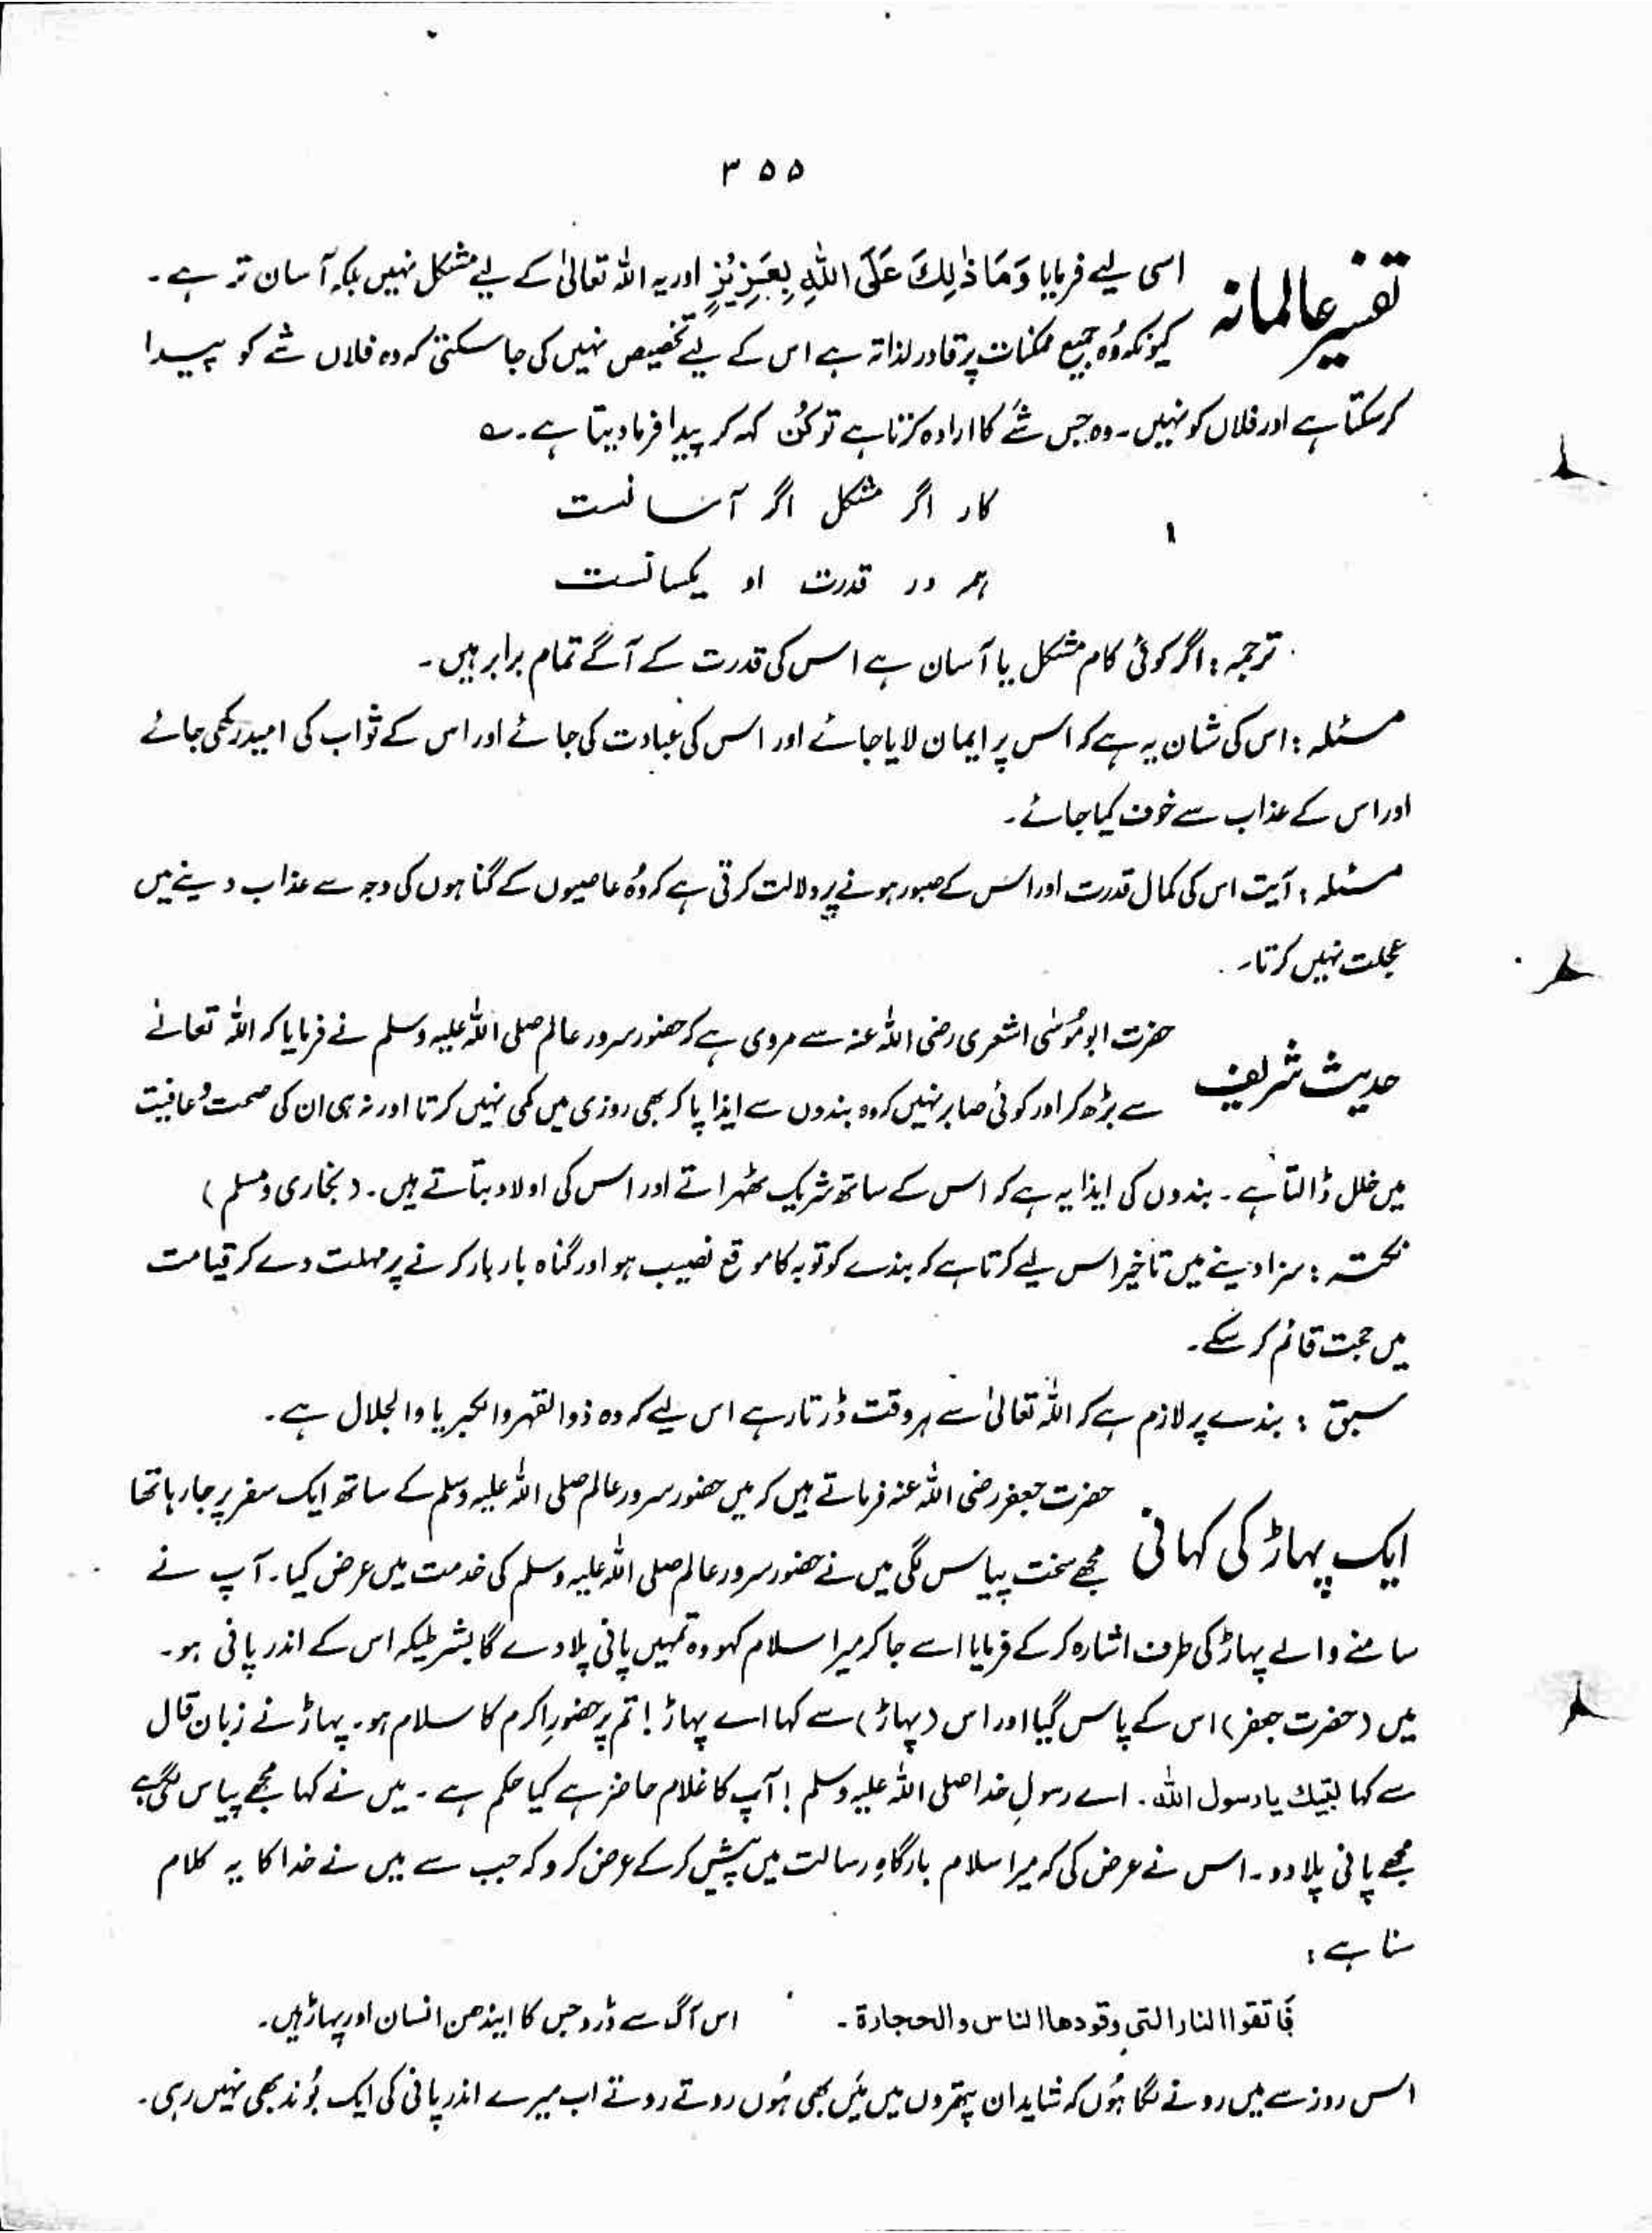 ۳۵۵
تفسیر عالمانہ
اسی لیے فرمایا وَمَا ذٰلِكَ عَلَى اللّٰهِ بِعَزِيْزٍ اور یہ اللہ تعالیٰ کے لیے مشکل نہیں بلکہ آسان تر ہے۔
کیونکہ وُہ جمیع ممکنات پر قادر لذاتہ ہے اس کے لیے تخصیص نہیں کی جا سکتی کہ وہ فلاں شے کو پیدا
کر سکتا ہے اور فلاں کو نہیں۔ وہ جس شے کا ارادہ کرتا ہے تو کُن کہہ کر پیدا فرما دیتا ہے۔ ؎
۱ کار اگر مشکل اگر آسانست
ہمہ در قدرت او یکسانست
ترجمہ: اگر کوئی کام مشکل یا آسان ہے اس کی قدرت کے آگے تمام برابر ہیں۔
مسئلہ: اس کی شان یہ ہے کہ اس پر ایمان لایا جائے اور اس کی عبادت کی جائے اور اس کے ثواب کی امید رکھی جائے
اور اس کے عذاب سے خوف کیا جائے۔
مسئلہ: آیت اس کی کمال قدرت اور اس کے صبور ہونے پر دلالت کرتی ہے کہ وُہ عاصیوں کے گناہوں کی وجہ سے عذاب دینے میں
عجلت نہیں کرتا۔
حدیث شریف
حضرت ابوموسٰی اشعری رضی اللہ عنہ سے مروی ہے کہ حضور سرور عالم صلی اللہ علیہ وسلم نے فرمایا کہ اللہ تعالےٰ
سے بڑھ کر اور کوئی صابر نہیں کہ وہ بندوں سے ایذا پا کر بھی روزی میں کمی نہیں کرتا اور نہ ہی ان کی صحت و عافیت
میں خلل ڈالتا ہے۔ بندوں کی ایذا یہ ہے کہ اس کے ساتھ شریک ٹھہراتے اور اس کی اولاد بتاتے ہیں۔ (بخاری و مسلم)
نکتہ: سزا دینے میں تاخیر اس لیے کرتا ہے کہ بندے کو توبہ کا موقع نصیب ہو اور گناہ بار بار کرنے پر مہلت دے کر قیامت
میں حجت قائم کر سکے۔
سبق: بندے پر لازم ہے کہ اللہ تعالیٰ سے ہر وقت ڈرتا رہے اس لیے کہ وہ ذوالقہر والکبریا والجلال ہے۔
ایک پہاڑ کی کہانی
حضرت جعفر رضی اللہ عنہ فرماتے ہیں کہ میں حضور سرور عالم صلی اللہ علیہ وسلم کے ساتھ ایک سفر پر جا رہا تھا
مجھے سخت پیاس لگی میں نے حضور سرور عالم صلی اللہ علیہ وسلم کی خدمت میں عرض کیا۔ آپ نے
سامنے والے پہاڑ کی طرف اشارہ کر کے فرمایا اسے جا کر میرا سلام کہو وہ تمہیں پانی پلا دے گا بشرطیکہ اس کے اندر پانی ہو۔
میں (حضرت جعفر) اس کے پاس گیا اور اس (پہاڑ) سے کہا اے پہاڑ! تم پر حضورِ اکرم کا سلام ہو۔ پہاڑ نے زبان قال
سے کہا لبّیك یا رسول اللہ۔ اے رسولِ خدا صلی اللہ علیہ وسلم! آپ کا غلام حاضر ہے کیا حکم ہے۔ میں نے کہا مجھے پیاس لگی ہے
مجھے پانی پلا دو۔ اس نے عرض کی کہ میرا سلام بارگاہِ رسالت میں پیش کر کے عرض کرو کہ جب سے میں نے خدا کا یہ کلام
سنا ہے:
فاتقوا النار التی وقودھا الناس والحجارۃ۔ اس آگ سے ڈرو جس کا ایندھن انسان اور پہاڑ ہیں۔
اس روز سے میں رونے لگا ہُوں کہ شاید ان پتھروں میں مَیں بھی ہُوں روتے روتے اب میرے اندر پانی کی ایک بُوند بھی نہیں رہی۔